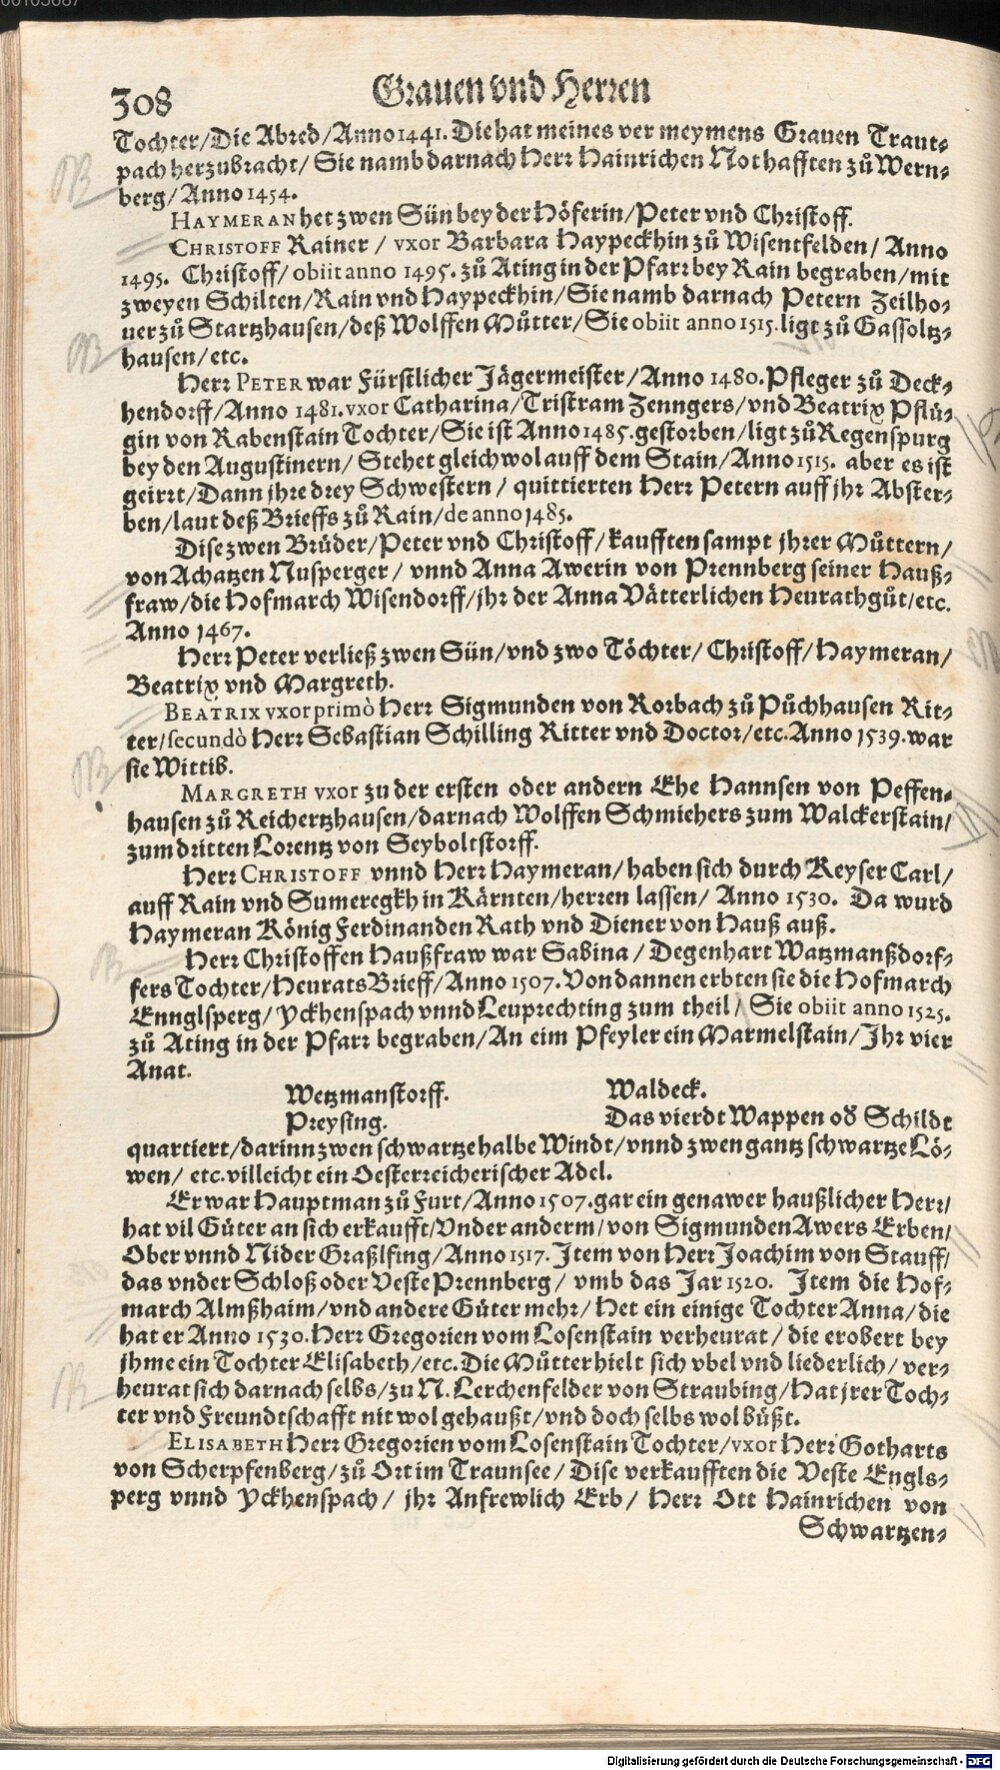 308
Grauen vnd Herren
Tochter/Die Abred/Anno 1441. Die hat meines vermeynens Grauen Traut-
pach herzubracht/ Sie namb darnach Herr Hainrichen Nothafften zů Wern-
berg/Anno 1454.
HAYMERAN het zwen Sün bey der Höferin/Peter vnd Christoff.
CHRISTOFF Rainer / vxor Barbara Haypeckhin zů Wisentfelden/ Anno
1495. Christoff/ obiit anno 1495. zů Ating in der Pfarr bey Rain begraben/mit
zweyen Schilten/Rain vnd Haypeckhin/Sie namb darnach Petern Zeilho-
uer zů Startzhausen/deß Wolffen Můtter/Sie obiit anno 1515. ligt zů Gassoltz-
hausen/etc.
Herr PETER war Fürstlicher Jägermeister/Anno 1480. Pfleger zů Deck-
hendorff/Anno 1481. vxor Catharina/Tristram Zenngers/vnd Beatrix Pflü-
gin von Rabenstain Tochter/Sie ist Anno 1485. gestorben/ligt zů Regenspurg
bey den Augustinern/ Stehet gleichwol auff dem Stain/Anno 1515. aber es ist
geirrt/Dann jhre drey Schwestern / quittierten Herr Petern auff jhr Abster-
ben/laut deß Brieffs zů Rain/de anno 1485.
Dise zwen Brüder/Peter vnd Christoff/kaufften sampt jhrer Můttern/
von Achatzen Nusperger/ vnnd Anna Awerin von Prennberg seiner Hauß-
fraw/die Hofmarch Wisendorff/jhr der Anna Vätterlichen Heurathgůt/etc.
Anno 1467.
Herr Peter verließ zwen Sün/vnd zwo Töchter/ Christoff/Haymeran/
Beatrix vnd Margreth.
BEATRIX vxor primò Herr Sigmunden von Rorbach zů Půchhausen Rit-
ter/secundò Herr Sebastian Schilling Ritter vnd Doctor/etc. Anno 1539. war
sie Wittib.
MARGRETH vxor zu der ersten oder andern Ehe Hannsen von Peffen-
hausen zů Reichertzhausen/darnach Wolffen Schmiehers zum Walckerstain/
zum dritten Lorentz von Seyboltstorff.
Herr CHRISTOFF vnnd Herr Haymeran/haben sich durch Keyser Carl/
auff Rain vnd Sumeregkh in Kärnten/herren lassen/ Anno 1530. Da wurd
Haymeran König Ferdinanden Rath vnd Diener von Hauß auß.
Herr Christoffen Haußfraw war Sabina / Degenhart Watzmanßdorf-
fers Tochter/Heurats Brieff/Anno 1507. Von dannen erbten sie die Hofmarch
Ennglsperg/ Yckhenspach vnnd Leuprechting zum theil/ Sie obiit anno 1525.
zů Ating in der Pfarr begraben/An eim Pfeyler ein Marmelstain/Jhr vier
Anat.
Wetzmanstorff. Waldeck.
Preysing. Das vierdt Wappen oð Schildt
quartiert/darinn zwen schwartze halbe Windt/vnnd zwen gantz schwartze Lö-
wen/ etc. villeicht ein Oesterreicherischer Adel.
Er war Hauptman zů Furt/Anno 1507. gar ein genawer haußlicher Herr/
hat vil Güter an sich erkaufft/Vnder anderm/von Sigmunden Awers Erben/
Ober vnnd Nider Graßlfing/Anno 1517. Item von Herr Joachim von Stauff/
das vnder Schloß oder Veste Prennberg/ vmb das Jar 1520. Item die Hof-
march Almßhaim/vnd andere Güter mehr/ Het ein einige Tochter Anna/die
hat er Anno 1530. Herr Gregorien vom Losenstain verheurat/ die erobert bey
jhme ein Tochter Elisabeth/etc. Die Můtter hielt sich vbel vnd liederlich/ ver-
heurat sich darnach selbs/zu N. Lerchenfelder von Straubing/Hat jrer Toch-
ter vnd Freundtschafft nit wol gehaußt/vnd doch selbs wol büßt.
ELISABETH Herr Gregorien vom Losenstain Tochter/vxor Herr Gotharts
von Scherpfenberg/zů Ort im Traunsee/Dise verkaufften die Veste Engls-
perg vnnd Yckhenspach/ jhr Anfrewlich Erb/ Herr Ott Hainrichen von
Schwartzen-
Digitalisierung gefördert durch die Deutsche Forschungsgemeinschaft - DFG